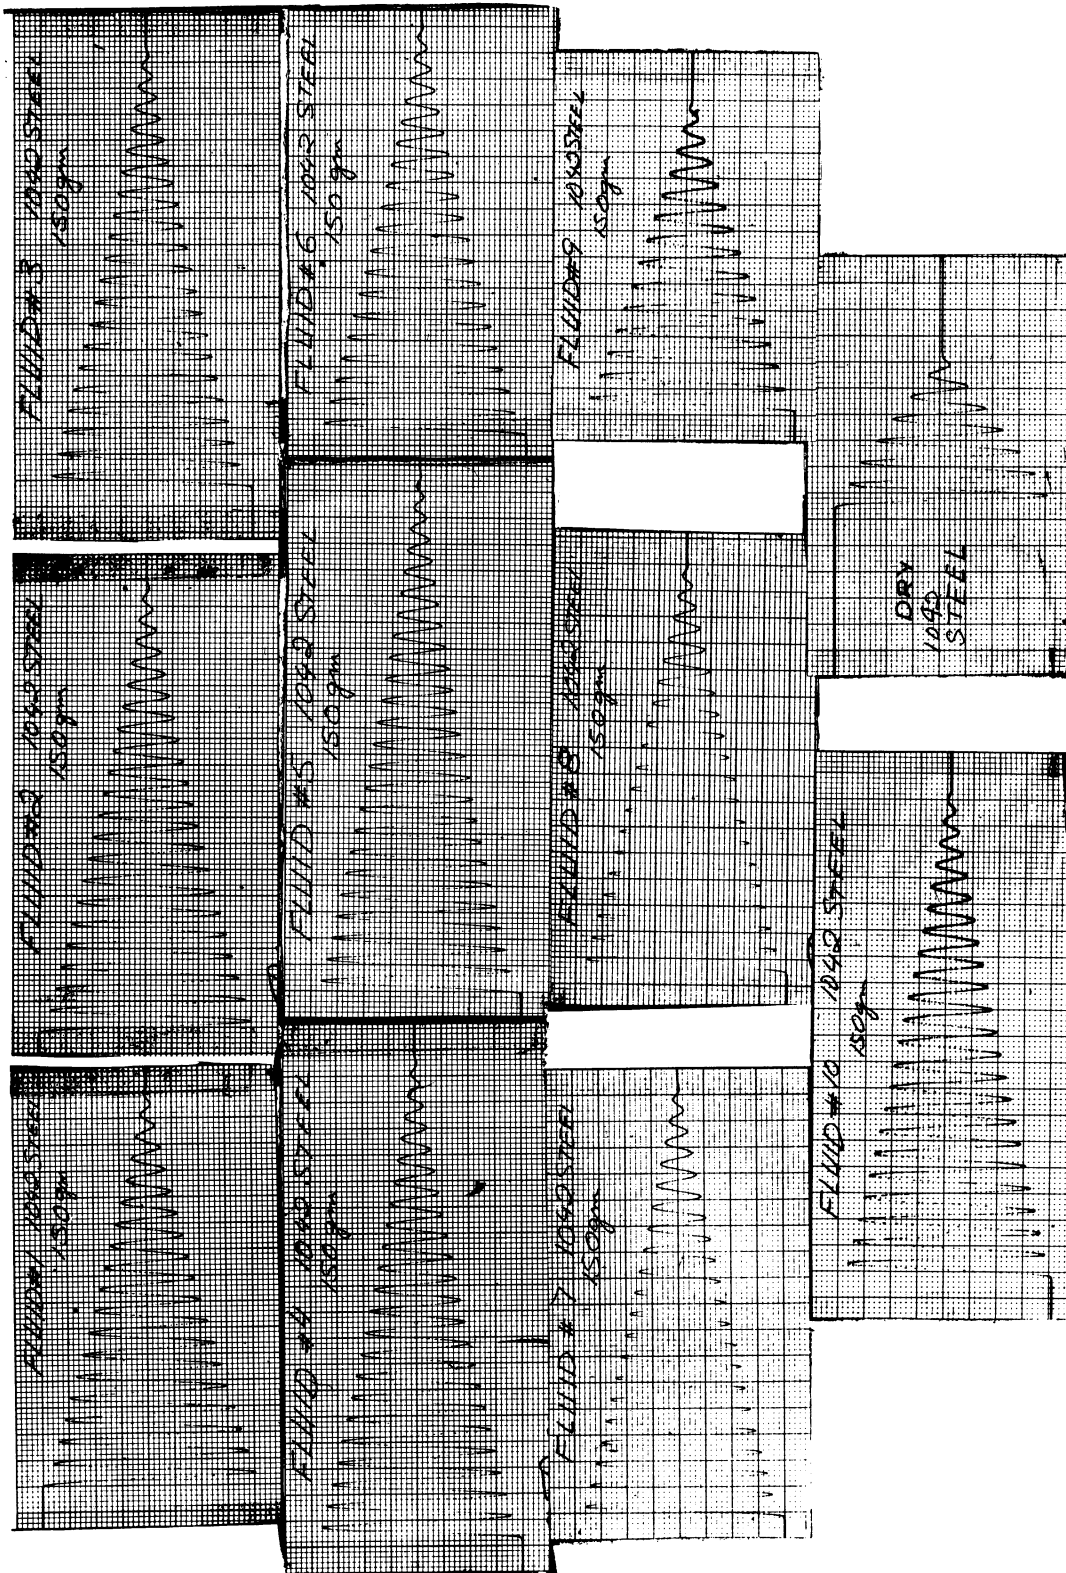 FLUID #1 1042 STEEL
150gm
FLUID #2 1042 STEEL
150gm
FLUID #3 1042 STEEL
150gm
FLUID #4 1042 STEEL
150gm
FLUID #5 1042 STEEL
150gm
FLUID #6 1042 STEEL
150gm
FLUID #7 1042 STEEL
150gm
FLUID #8 1042 STEEL
150gm
FLUID #9 1042 STEEL
150gm
FLUID #10 1042 STEEL
150gm
DRY
1042
STEEL